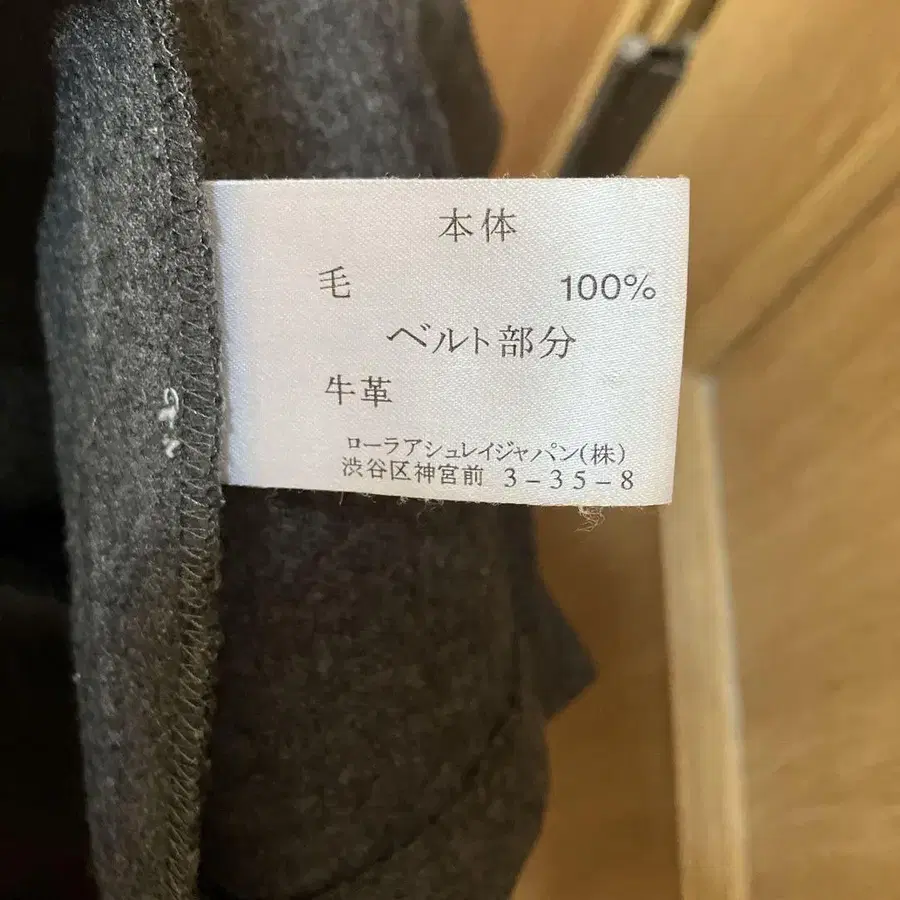 本体
毛 100%
ベルト部分
牛革
ローラアシュレイジャパン(株)
渋谷区神宮前 3-35-8